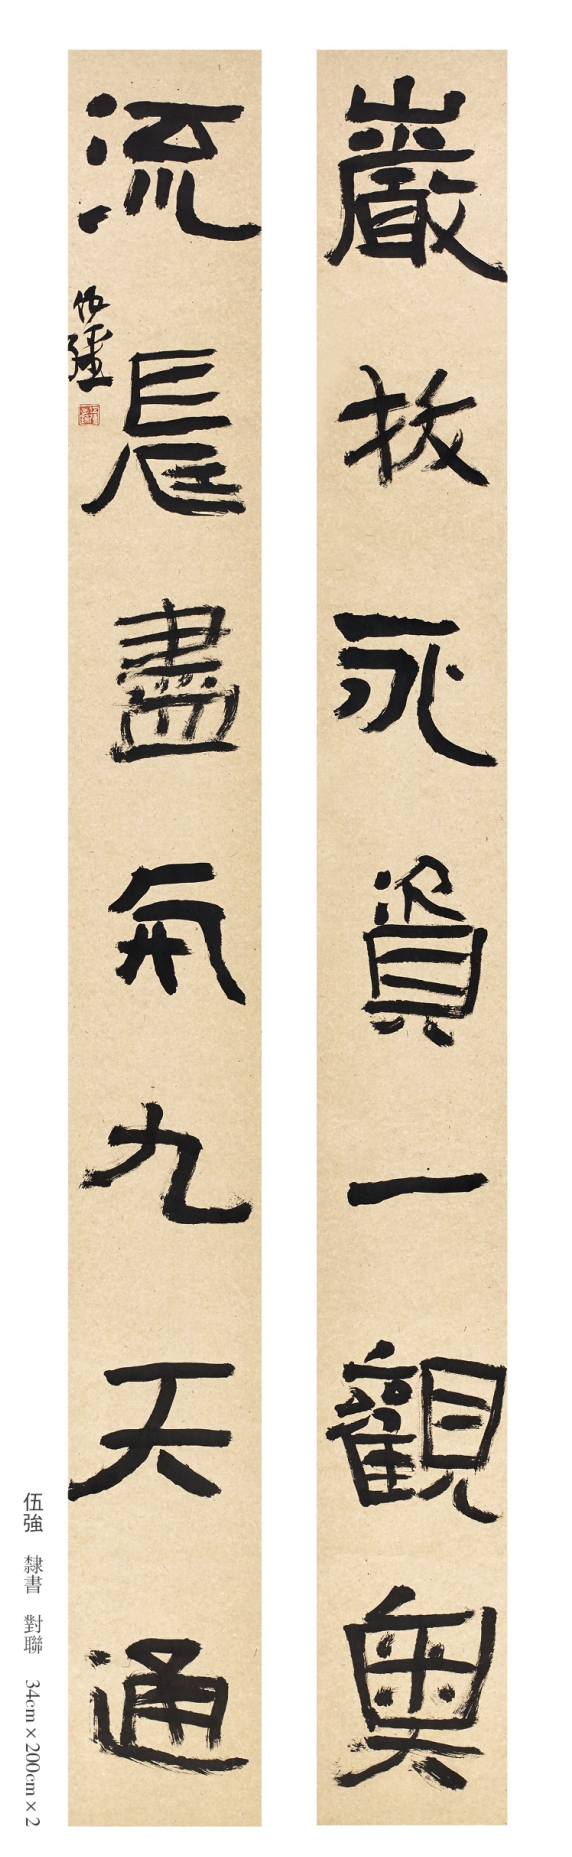 巖拔永資一觀奧
流長盡氣九天通
伍彊
伍強 隸書 對聯 34cm×200cm×2